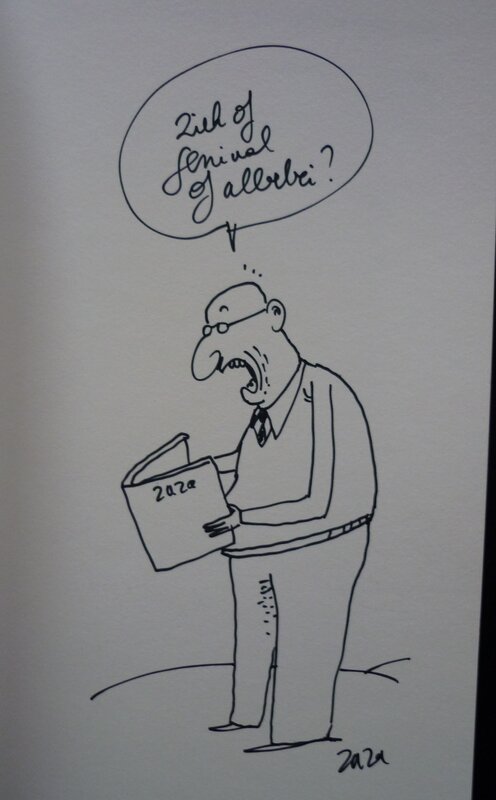 Ziek of
geniaal
of allebei?
zaza
zaza